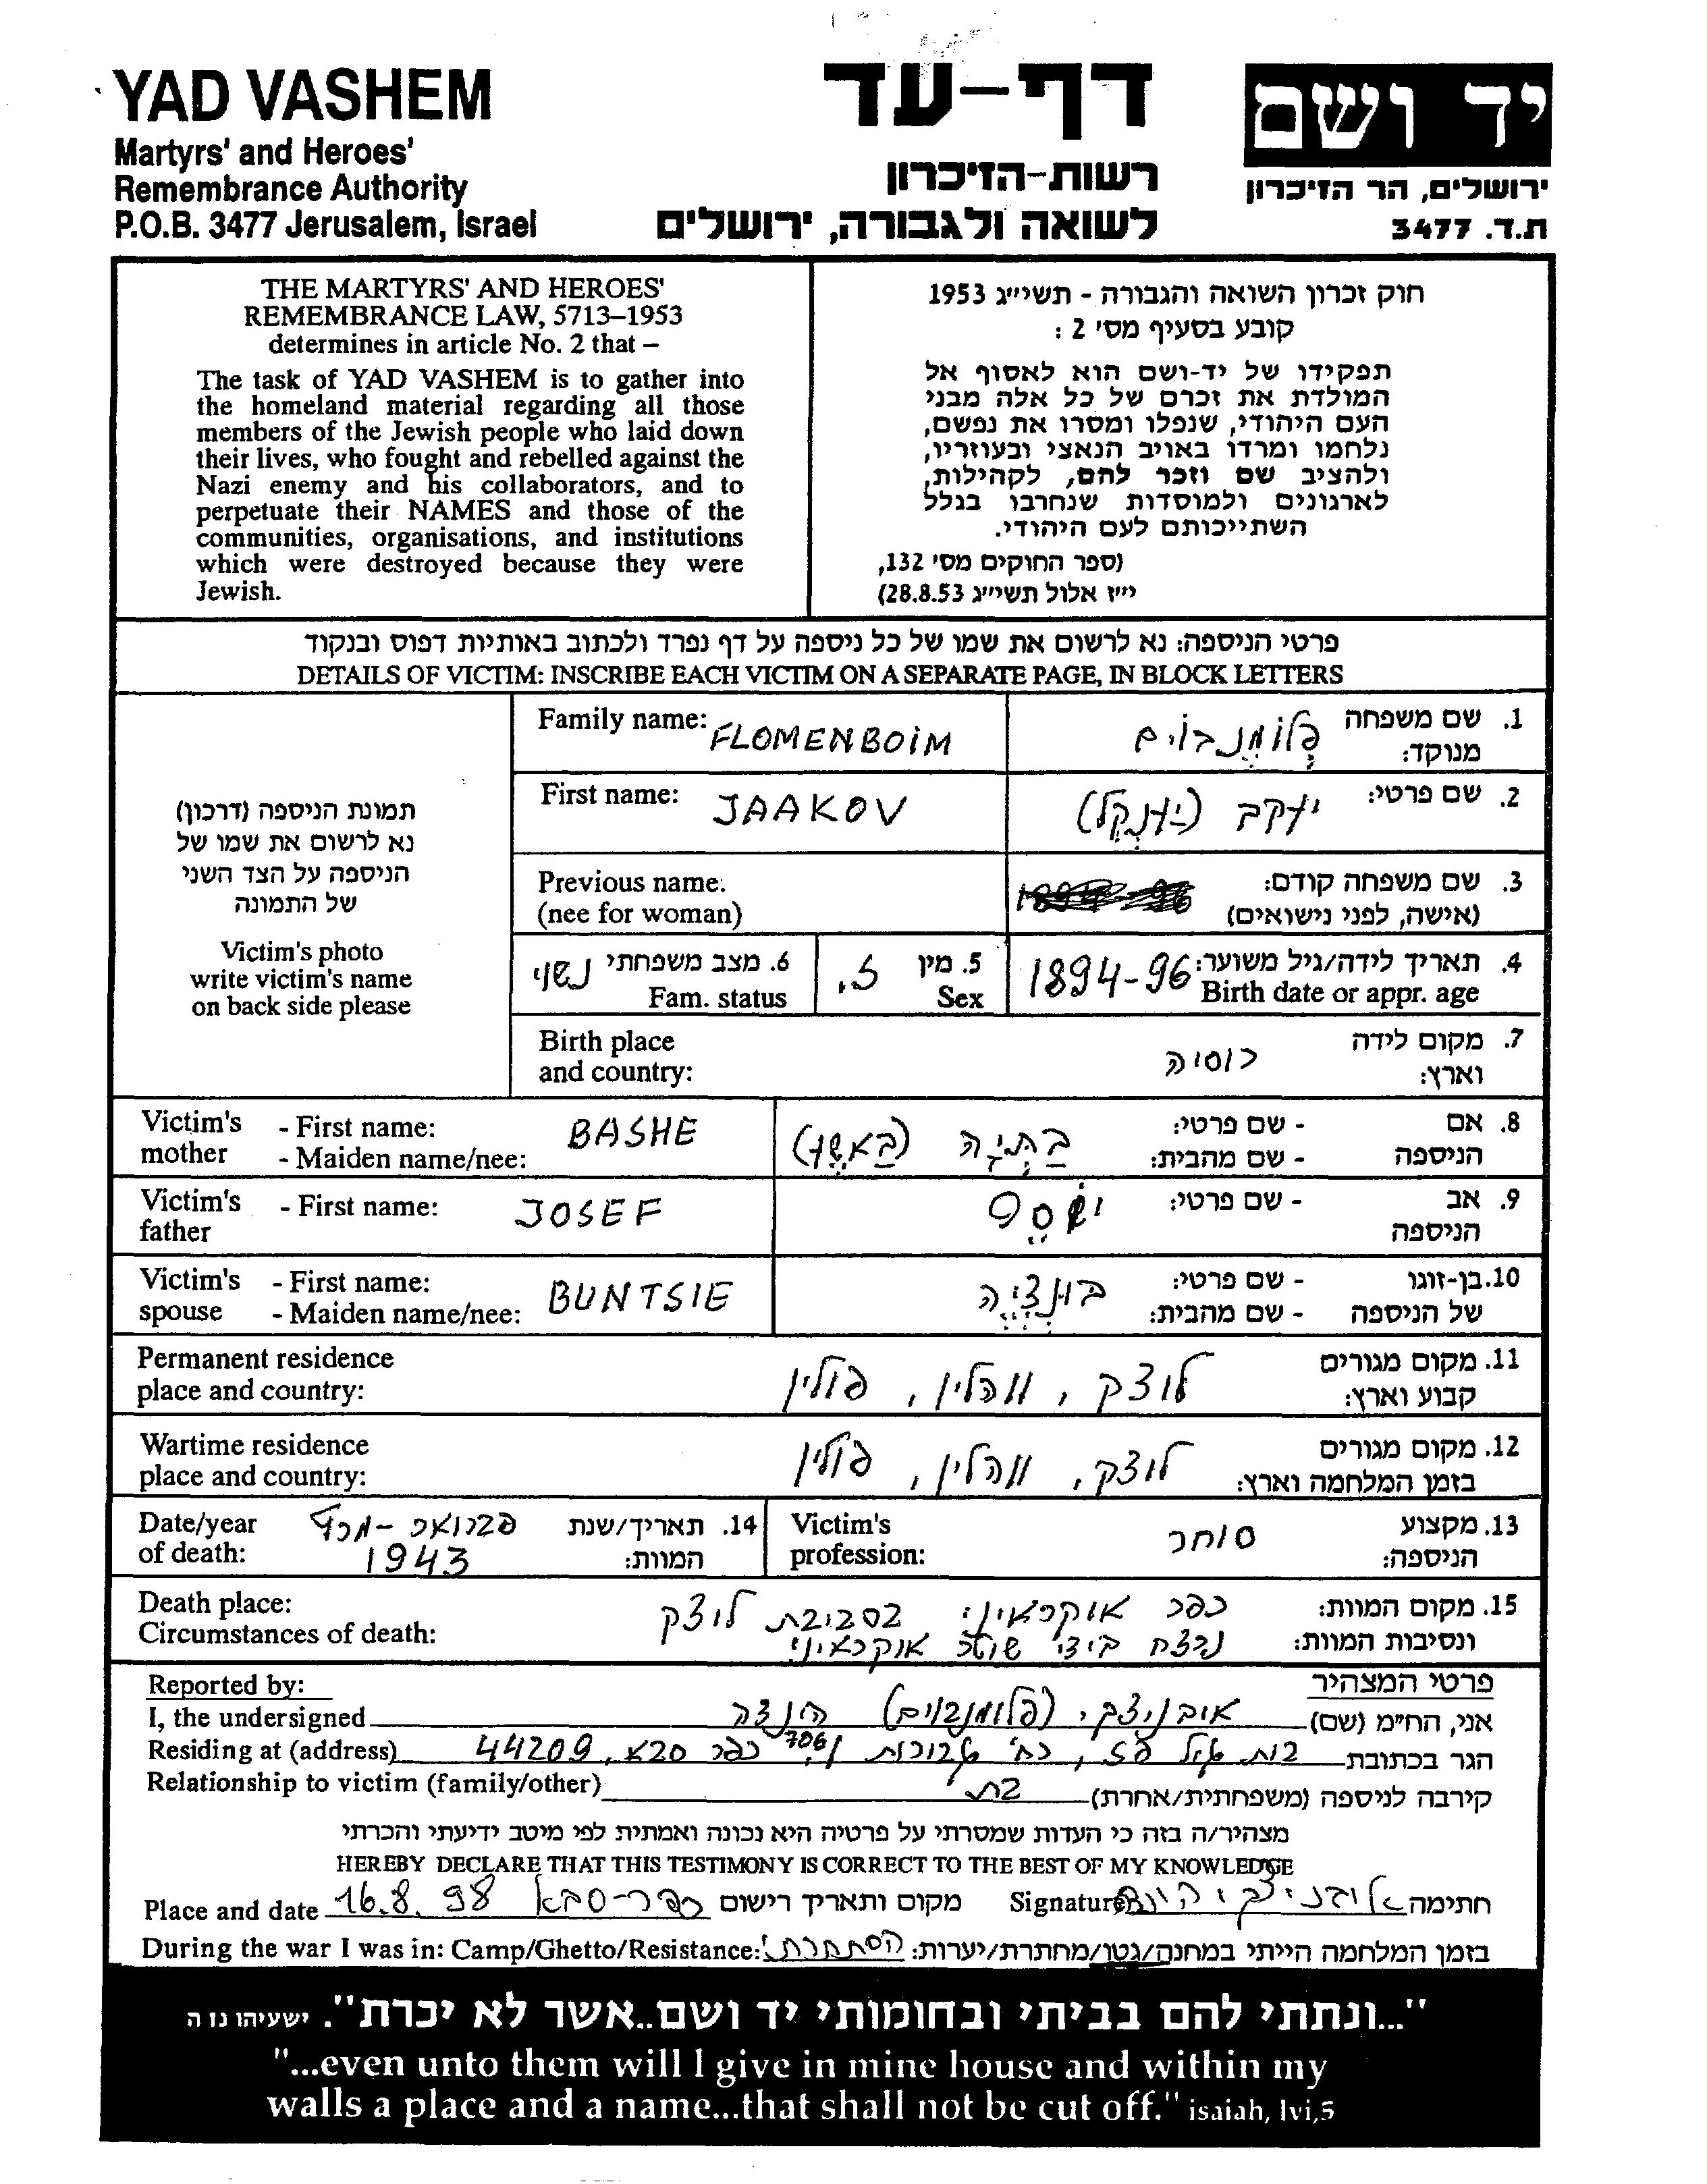 YAD VASHEM
Martyrs' and Heroes'
Remembrance Authority
P.O.B. 3477 Jerusalem, Israel
דף-עד
רשות-הזיכרון
לשואה ולגבורה, ירושלים
יד ושם
ירושלים, הר הזיכרון
ת.ד. 3477
THE MARTYRS' AND HEROES'
REMEMBRANCE LAW, 5713–1953
determines in article No. 2 that –
The task of YAD VASHEM is to gather into
the homeland material regarding all those
members of the Jewish people who laid down
their lives, who fought and rebelled against the
Nazi enemy and his collaborators, and to
perpetuate their NAMES and those of the
communities, organisations, and institutions
which were destroyed because they were
Jewish.
חוק זכרון השואה והגבורה - תשי״ג 1953
קובע בסעיף מס' 2 :
תפקידו של יד-ושם הוא לאסוף אל
המולדת את זכרם של כל אלה מבני
העם היהודי, שנפלו ומסרו את נפשם,
נלחמו ומרדו באויב הנאצי ובעוזריו,
ולהציב שם וזכר להם, לקהילות,
לארגונים ולמוסדות שנחרבו בגלל
השתייכותם לעם היהודי.
(ספר החוקים מס' 132,
י״ז אלול תשי״ג 28.8.53)
פרטי הניספה: נא לרשום את שמו של כל ניספה על דף נפרד ולכתוב באותיות דפוס ובנקוד
DETAILS OF VICTIM: INSCRIBE EACH VICTIM ON A SEPARATE PAGE, IN BLOCK LETTERS
תמונת הניספה (דרכון)
נא לרשום את שמו של
הניספה על הצד השני
של התמונה
Victim's photo
write victim's name
on back side please
Family name: FLOMENBOIM
1. שם משפחה מנוקד: פלומנבוים
First name: JAAKOV
2. שם פרטי: יעקב (יענקל)
Previous name:
(nee for woman)
3. שם משפחה קודם:
(אישה, לפני נישואים)
4. תאריך לידה/גיל משוער: 1894-96
Birth date or appr. age
5. מין ז.
Sex
6. מצב משפחתי נשוי
Fam. status
Birth place
and country:
7. מקום לידה
וארץ: רוסיה
Victim's mother - First name: BASHE
- Maiden name/nee:
8. אם הניספה - שם פרטי: בתיה (באשע)
- שם מהבית:
Victim's father - First name: JOSEF
9. אב הניספה - שם פרטי: יוסף
Victim's spouse - First name: BUNTSIE
- Maiden name/nee:
10. בן-זוגו של הניספה - שם פרטי: בונציה
- שם מהבית:
Permanent residence
place and country:
11. מקום מגורים
קבוע וארץ: לוצק, ווהלין, פולין
Wartime residence
place and country:
12. מקום מגורים
בזמן המלחמה וארץ: לוצק, ווהלין, פולין
Date/year
of death:
14. תאריך/שנת
המוות: פברואר - מרץ
1943
Victim's
profession:
13. מקצוע
הניספה: סוחר
Death place:
Circumstances of death:
15. מקום המוות: כפר אוקראיני בסביבת לוצק
ונסיבות המוות: נרצח בידי שוטר אוקראיני
Reported by:
פרטי המצהיר
I, the undersigned
אני, הח״מ (שם) (פלומנבוים)
Residing at (address)
הגר בכתובת 706, כפר סבא, 44209
Relationship to victim (family/other)
קירבה לניספה (משפחתית/אחרת) בת
מצהיר/ה בזה כי העדות שמסרתי על פרטיה היא נכונה ואמתית לפי מיטב ידיעתי והכרתי
HEREBY DECLARE THAT THIS TESTIMONY IS CORRECT TO THE BEST OF MY KNOWLEDGE
Place and date 16.8.98 כפר-סבא מקום ותאריך רישום
Signature חתימה
During the war I was in: Camp/Ghetto/Resistance:
בזמן המלחמה הייתי במחנה/גטו/מחתרת/יערות:
"...ונתתי להם בביתי ובחומותי יד ושם..אשר לא יכרת". ישעיהו נו ה
"...even unto them will I give in mine house and within my
walls a place and a name...that shall not be cut off." isaiah, lvi,5